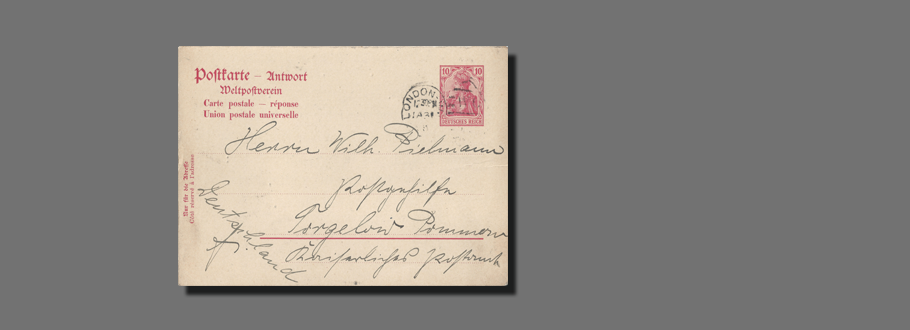 Postkarte – Antwort
Weltpostverein
Carte postale – réponse
Union postale universelle
10 10
DEUTSCHES REICH
LONDON
Herrn Wilh. Pielmann
Postgehilfe
Torgelow Pommern
Kaiserliches Postamt
Deutschland
Nur für die Adresse
Côté réservé à l'adresse